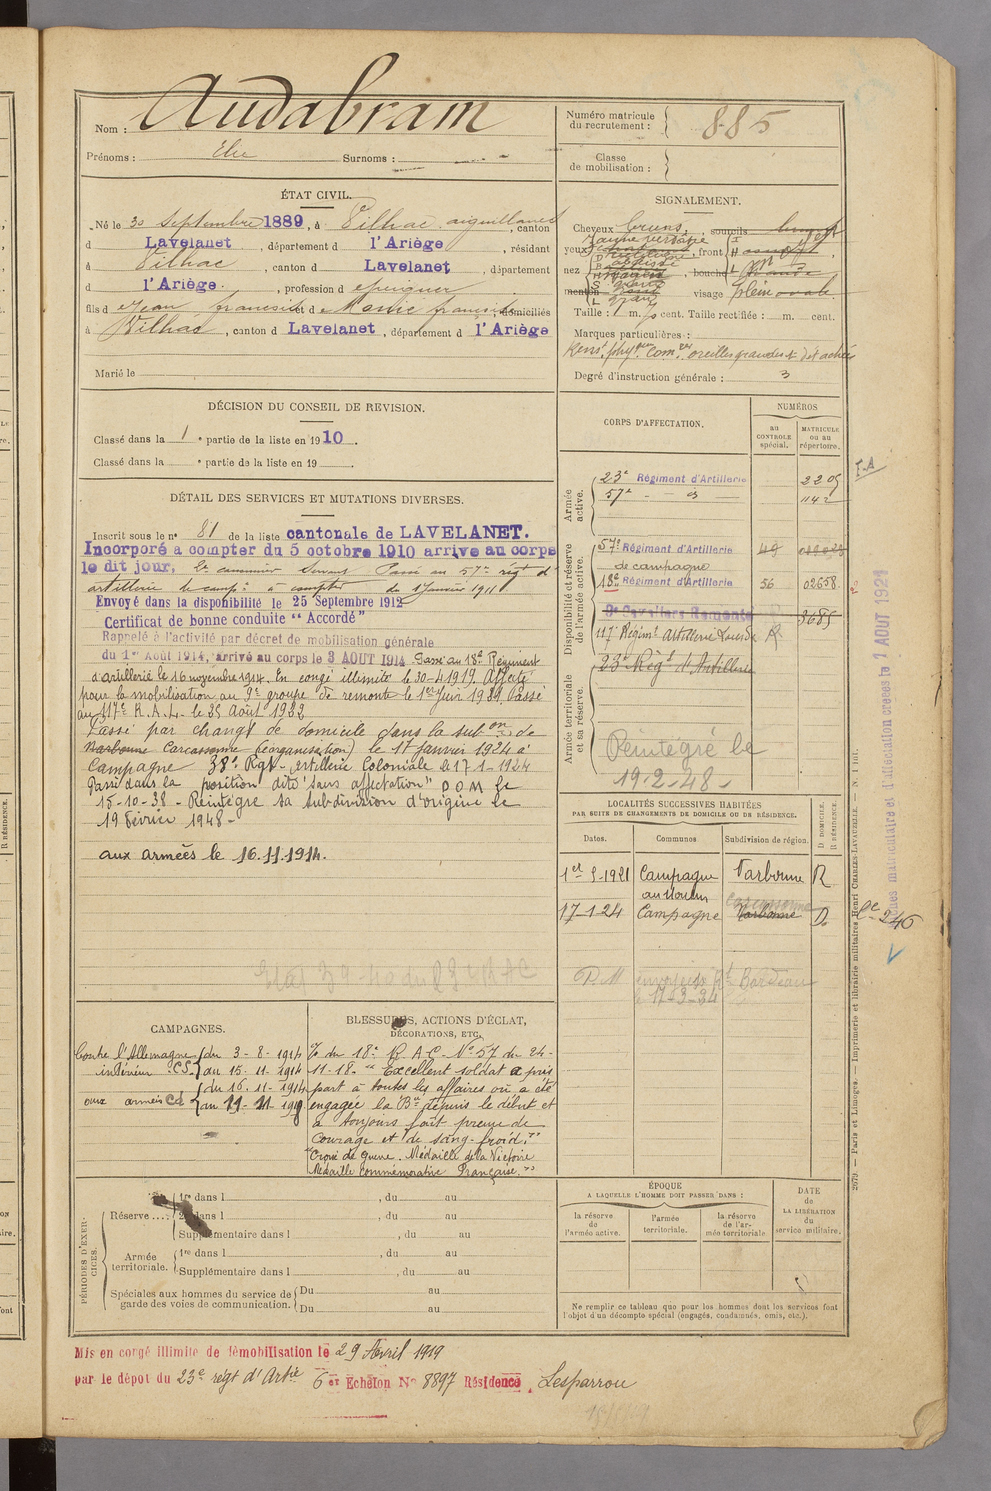 Nom : Audabram
Prénoms : Elie Surnoms :
Numéro matricule du recrutement : 885
Classe de mobilisation :
ÉTAT CIVIL.
Né le 30 Septembre 1889, à Pilhac aiguillanes, canton
d Lavelanet, département d l'Ariège, résidant
à Vilhac, canton d Lavelanet, département
d l'Ariège, profession d
fils d Jean francois et d Marie domiciliés
à Vilhac, canton d Lavelanet, département d l'Ariège
Marié le
SIGNALEMENT.
Cheveux bruns, sourcils
yeux jaune verdâtre, front
nez bouche
menton visage plein ovale
Taille : 1 m. cent. Taille rectifiée : m. cent.
Marques particulières :
Rens. phy. Com. oreilles grandes & détachées
Degré d'instruction générale : 3
DÉCISION DU CONSEIL DE REVISION.
Classé dans la 1 e partie de la liste en 1910.
Classé dans la e partie de la liste en 19
DÉTAIL DES SERVICES ET MUTATIONS DIVERSES.
Inscrit sous le n° 81 de la liste cantonale de LAVELANET.
Incorporé a compter du 5 octobre 1910 arrivé au corps
le dit jour, 2e canonnier Servant Passé au 57e régt d'
artillerie de camp. à compter du 1 Janvier 1911
Envoyé dans la disponibilité le 25 Septembre 1912
Certificat de bonne conduite "Accordé"
Rappelé à l'activité par décret de mobilisation générale
du 1er Août 1914, arrivé au corps le 3 AOUT 1914 Passé au 18e Régiment
d'artillerie le 16 novembre 1914. En congé illimité le 30-4-1919. Affecté
pour la mobilisation au 9e groupe de remonte le 1er Juin 1921. Passé
au 117e R.A.L. le 25 Août 1922
Passé par changt de domicile dans la subon de
Narbonne Carcassonne (réorganisation) le 17 Janvier 1924 à
Campagne 38e Rgt Artillerie Coloniale le 17-1-1924
Passé dans la position dite "sans affectation" D O M le
15-10-38 - Réintégré sa Subdivision d'origine le
19 Février 1948 -
aux armées le 16.11.1914.
CORPS D'AFFECTATION.
NUMÉROS
au CONTROLE spécial.
MATRICULE ou au répertoire.
Armée active.
23e Régiment d'Artillerie 2205
57e - d° 1142
Disponibilité et réserve de l'armée active.
57e Régiment d'Artillerie 49
de campagne
18e Régiment d'Artillerie 56 02658
9e Cavaliers Remonte 3685
117e Régimt Artillerie Lourde R
Armée territoriale et sa réserve.
23e Régt d'Artillerie
Réintégré le
19-2-48 -
LOCALITÉS SUCCESSIVES HABITÉES
PAR SUITE DE CHANGEMENTS DE DOMICILE OU DE RÉSIDENCE.
Dates. Communes Subdivision de région. D DOMICILE. R RÉSIDENCE.
1er 8-1921 Campagne Narbonne R
17-1-24 Campagne Carcassonne Narbonne D
le 17-3-34
CAMPAGNES.
Contre l'Allemagne du 3-8-1914
intérieur CS au 15-11-1914
du 16-11-1914
aux armées CD au 11-11-1918
BLESSURES, ACTIONS D'ÉCLAT, DÉCORATIONS, ETC.
% du 18e R.A.C. N° 57 du 24-
11-18- "Excellent soldat a pris
part à toutes les affaires où a été
engagée la Bie depuis le début et
a toujours fait preuve de
courage et de sang-froid."
Croix de Guerre. Médaille de la Victoire
Médaille Commémorative Française.
PÉRIODES D'EXERCICES.
Réserve.... 1re dans l , du au
2e dans l , du au
Supplémentaire dans l , du au
Armée territoriale. 1re dans l , du au
Supplémentaire dans l , du au
Spéciales aux hommes du service de garde des voies de communication. Du au
Du au
ÉPOQUE
A LAQUELLE L'HOMME DOIT PASSER DANS :
la réserve de l'armée active.
l'armée territoriale.
la réserve de l'armée territoriale
DATE de LA LIBÉRATION du service militaire.
Ne remplir ce tableau que pour les hommes dont les services font
l'objet d'un décompte spécial (engagés, condamnés, omis, etc.).
Mis en congé illimité de démobilisation le 29 Avril 1919
par le dépot du 23e régt d'Artie 6er Echelon N° 8897 Résidence Lesparrou
2679. — Paris et Limoges. — Imprimerie et librairie militaires Henri CHARLES-LAVAUZELLE.
matriculaire et d'affectation créées le 1 AOUT 1921
246